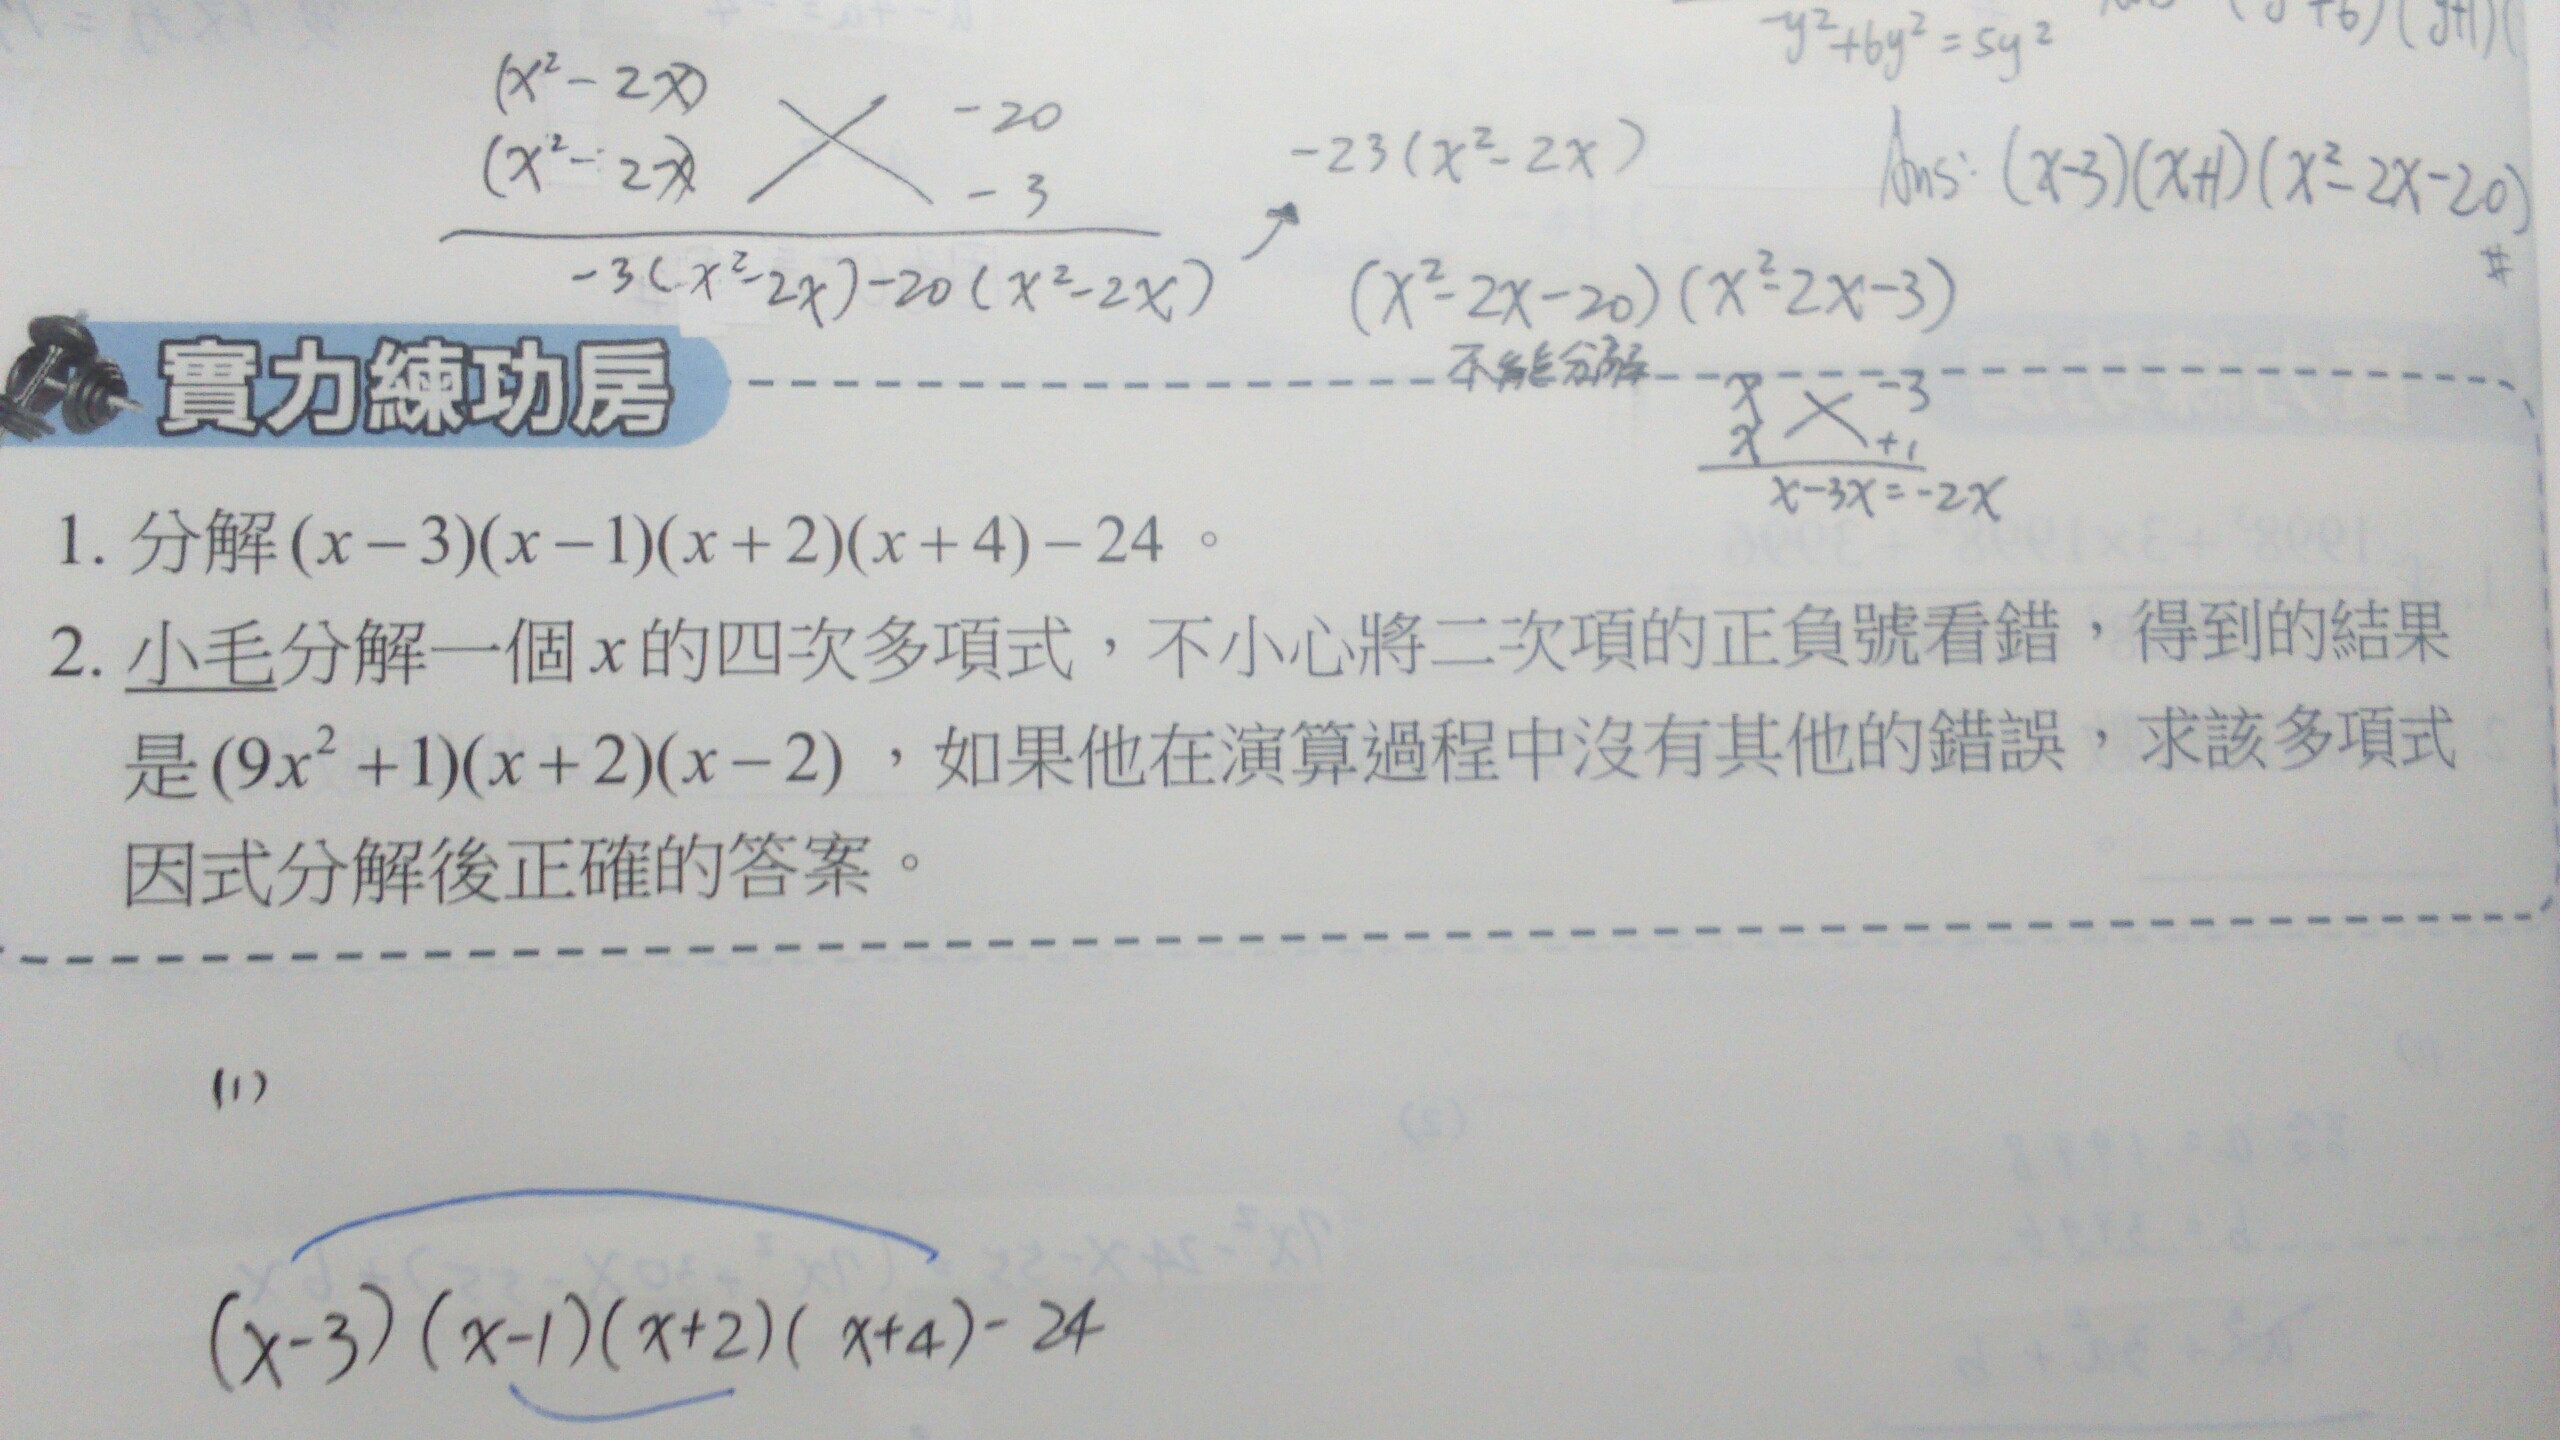 -y²+6y²=5y²
(x²-2x) -20
(x²-2x) -3
-3(x²-2x)-20(x²-2x)
-23(x²-2x)
Ans: (x-3)(x+1)(x²-2x-20)
#
(x²-2x-20)(x²-2x-3)
不能分解
x -3
x +1
x-3x=-2x
實力練功房
1. 分解(x-3)(x-1)(x+2)(x+4)-24。
2. 小毛分解一個x的四次多項式,不小心將二次項的正負號看錯,得到的結果
是(9x²+1)(x+2)(x-2),如果他在演算過程中沒有其他的錯誤,求該多項式
因式分解後正確的答案。
(1)
(x-3)(x-1)(x+2)(x+4)-24